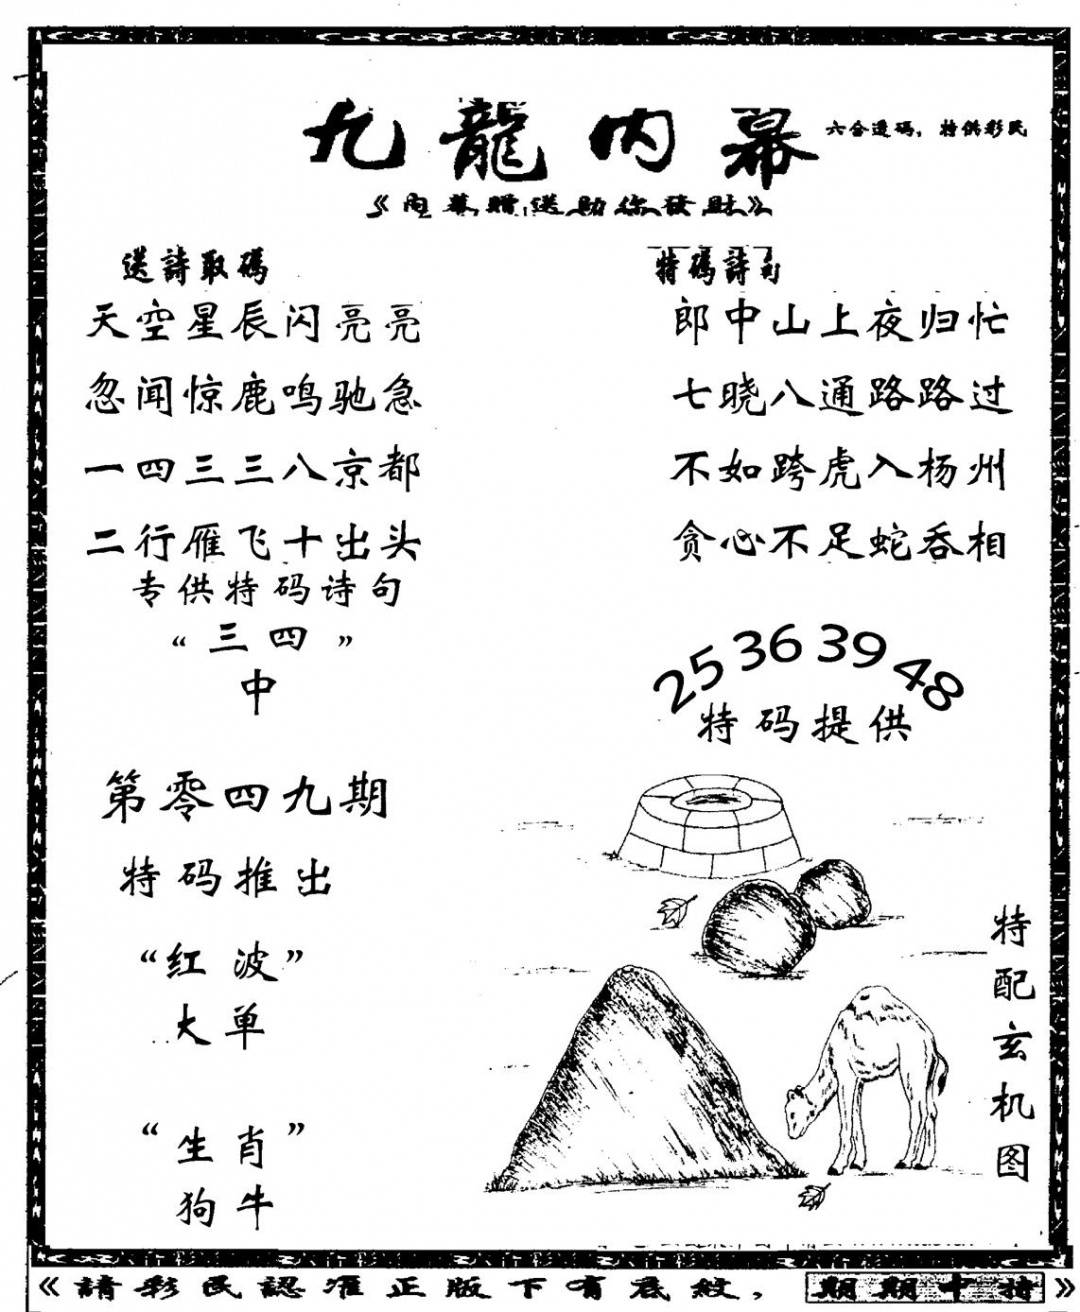 九龍内幕
六合透码，特供彩民
《内幕赠送助你發财》
送詩取碼
天空星辰闪亮亮
忽闻惊鹿鸣驰急
一四三三八京都
二行雁飞十出头
专供特码诗句
“三四”
中
第零四九期
特码推出
“红波”
大单
“生肖”
狗牛
特碼詩句
郎中山上夜归忙
七晓八通路路过
不如跨虎入杨州
贪心不足蛇吞相
25 36 39 48
特码提供
特配玄机图
《請彩民認准正版下有底紋，期期中特》